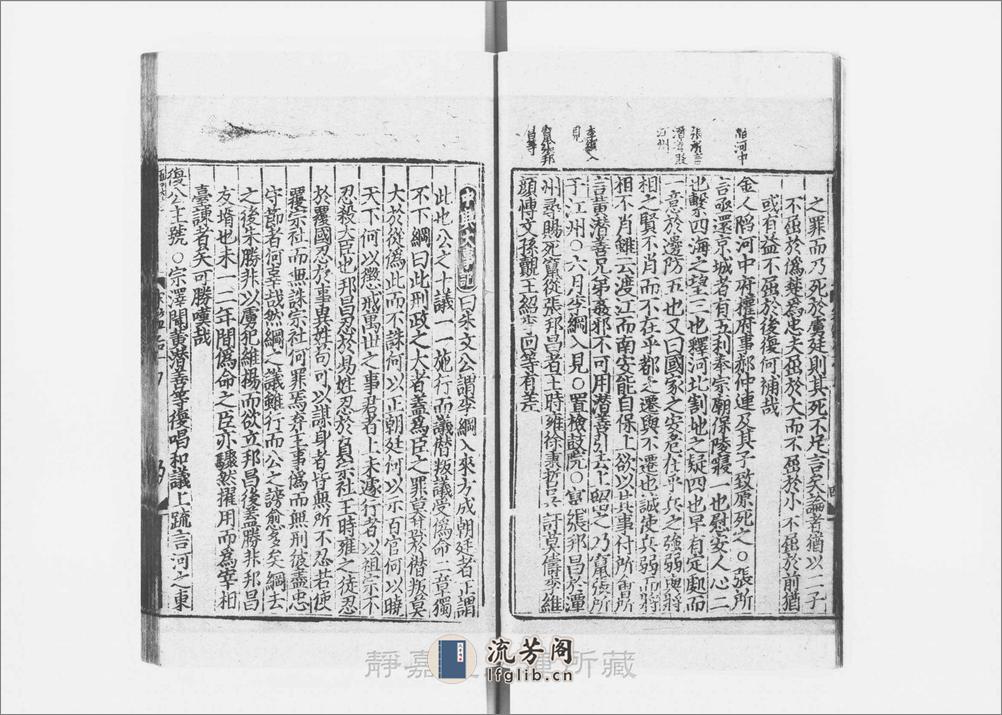 之罪而乃死於虜廷則其死不足言矣論者猶以二子
不屈於僞楚爲忠夫屈於大而不屈於小不屈於前猶
或有益不屈於後復何補哉
金人陷河中府權府事郝仲連及其子致厚死之○張所
言亟還京城者有五利奉宗廟保陵寢一也慰安人心二
也繫四海之望三也釋河北割地之疑四也早有定處而
一意於邊防五也又曰國家之安危在乎兵之強弱與將
相之賢不肖而不在乎都之遷與不遷也誠使兵弱而將
相不肖雖云渡江而南安能自保上欲以其事付所會所
言黃潛善兄弟姦邪不可用潛善
于江州○六月李綱入見○置檢鼓院○竄張邦昌於潭
州尋賜死竄從張邦昌者王時雍徐秉哲吳幵莫儔李維
顏博文孫覿王紹等有差
陷河中
張所言
潛善貶
江州
李綱入
見
竄張邦
昌等
中興大事記曰朱文公謂李綱入來方成朝廷者正謂
此也公之十議一一施行而議僭叛議受僞命二章獨
不下綱曰此刑政之大者蓋爲臣之罪莫大於僭叛莫
大於從僞此而不誅何以正朝廷何以示百官何以曉
天下何以懲戒萬世之事君者上未遽行者以祖宗不
忍殺大臣也邦昌忍於易姓忍於負宗社王時雍之徒忍
於覆國忍於事異姓苟可以謀身者皆無所不忍若使
覆宗社而無誅宗社何罪焉弃王事僞而無刑彼盡忠
守節者何辜哉然綱之議雖行而公之謗愈多矣綱去
之後朱勝非以虜犯維揚而欲立邦昌後蓋勝非邦昌
友壻也未一二年間僞命之臣亦驟然擢用而爲宰相
臺諫者矣可勝嘆哉
復公主號○宗澤聞黃潛善等復唱和議上疏言河之東
靜嘉 所藏
流芳阁
lfglib.cn